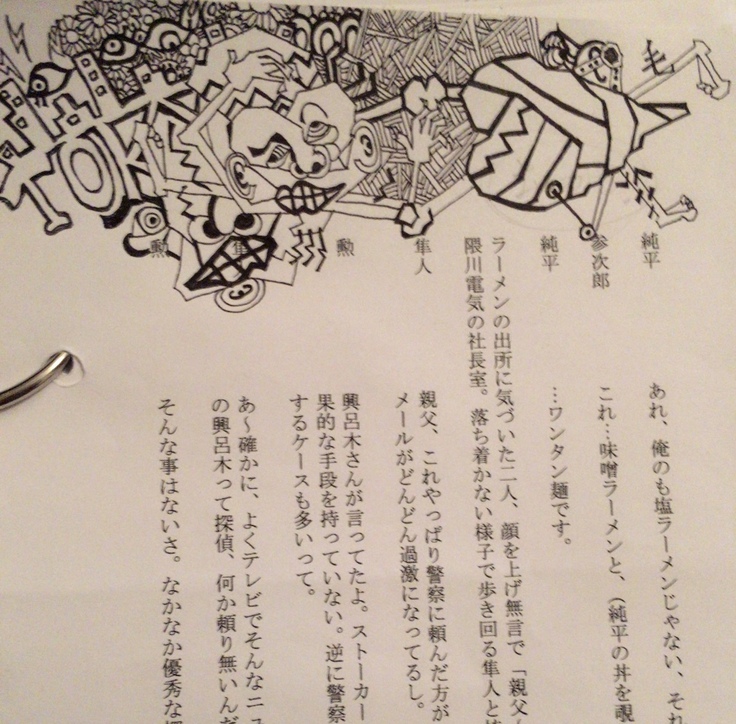 純平　あれ、俺のも塩ラーメンじゃない、それ
参次郎　これ…味噌ラーメンと、（純平の丼を覗
純平　…ワンタン麺です。
ラーメンの出所に気づいた二人、顔を上げ無言で「親父
隈川電気の社長室。落ち着かない様子で歩き回る隼人と
隼人　親父、これやっぱり警察に頼んだ方が
メールがどんどん過激になってるし。
勲　興呂木さんが言ってたよ。ストーカー
果的な手段を持っていない。逆に警察
するケースも多いって。
隼人　あ～確かに、よくテレビでそんなニュ
の興呂木って探偵、何か頼り無いんだ
勲　そんな事はないさ。なかなか優秀な
TOK
毛